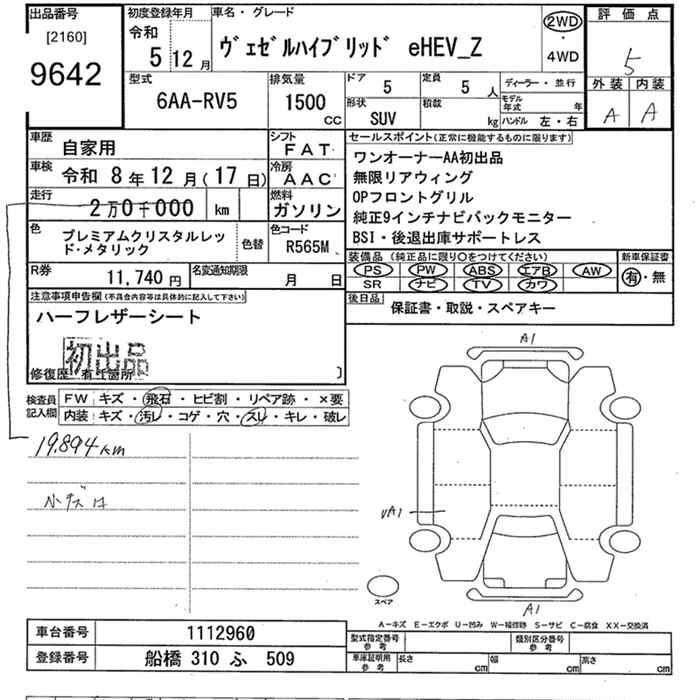 出品番号
[2160]
9642
初度登録年月
令和
5 12 月
車名・グレード
ヴェゼルハイブリッド eHEV_Z
2WD
・
4WD
評価点
5
外装 内装
A A
型式
6AA-RV5
排気量
1500
CC
ドア 5
形状 SUV
定員 5 人
積載 kg
ディーラー・並行
モデル年式 年
ハンドル 左・右
車歴 自家用
シフト FAT
車検 令和 8 年 12 月(17 日)
冷房 AAC
走行 2万0千000 km
燃料 ガソリン
色 プレミアムクリスタルレッド・メタリック
色替
色コード R565M
R券 11,740 円
名変通知期限 月 日
セールスポイント(正常に機能するものに限ります)
ワンオーナーAA初出品
無限リアウィング
OPフロントグリル
純正9インチナビバックモニター
BSI・後退出庫サポートレス
装備品 (純正品に限り○をつけてください)
PS PW ABS エアB AW
SR ナビ TV カワ
新車保証書
有・無
後日品 保証書・取説・スペアキー
注意事項申告欄(不具合内容等は具体的に記入して下さい)
ハーフレザーシート
初出品
修復歴 有・箇所 )
検査員記入欄
FW キズ・飛石・ヒビ割・リペア跡・×要
内装 キズ・汚レ・コゲ・穴・スレ・キレ・破レ
19.894km
小キズ
A1
UA1
A1
スペア
A-キズ E-エクボ U-凹み W-補修跡 S-サビ C-腐食 XX-交換済
車台番号 1112960
登録番号 船橋 310 ふ 509
型式指定番号 参考
類別区分番号 参考
車庫証明用 参考 長さ cm 幅 cm 高さ cm